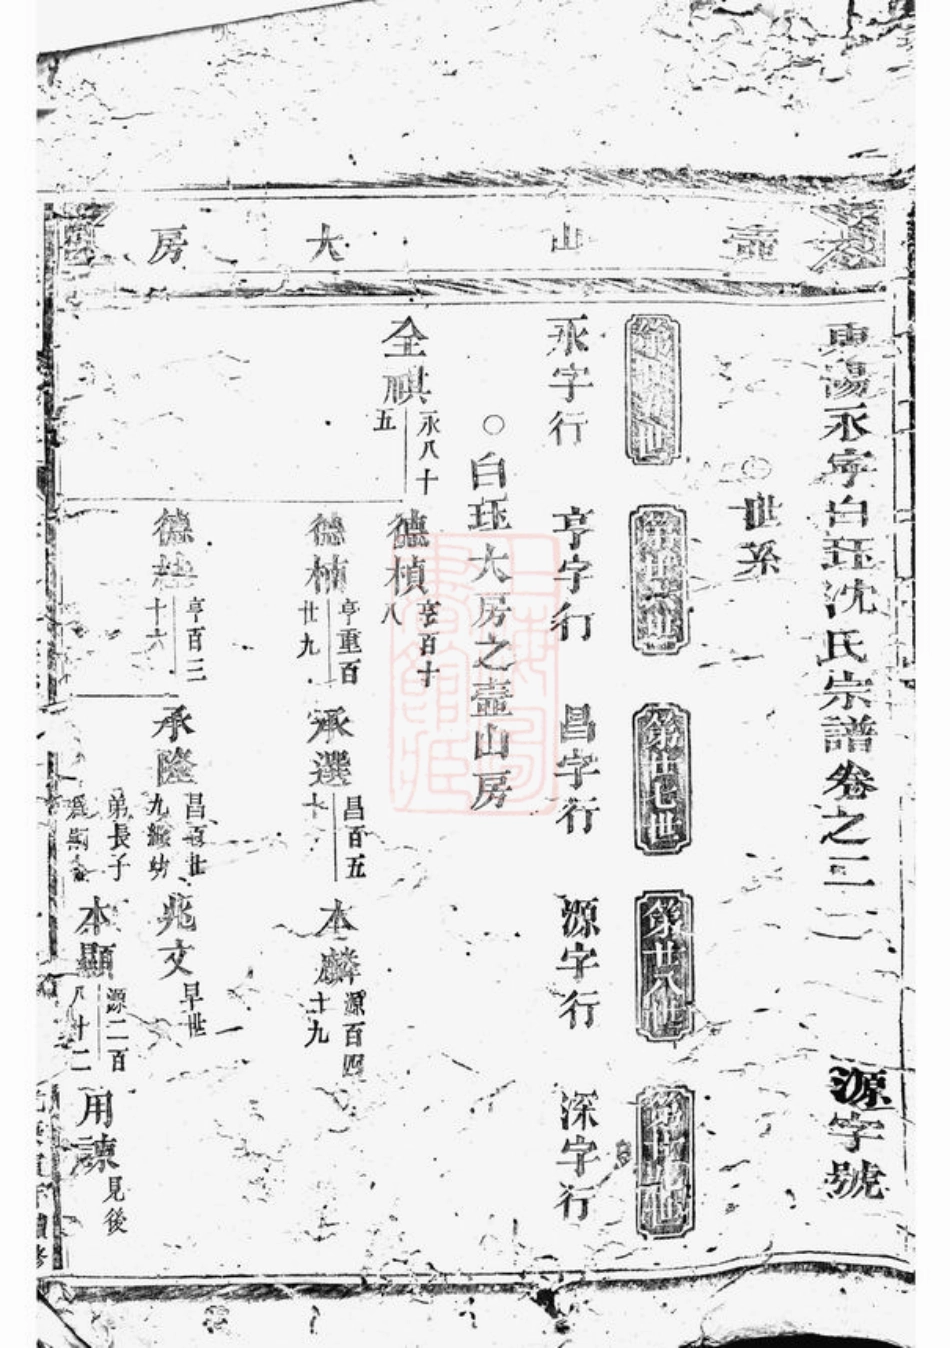 壺山大房
東陽永字白珏沈氏宗譜卷之三二
源字號
世系
第廿五世
第廿六世
第廿七世
第廿八世
第廿九世
永字行
亨字行
昌字行
源字行
深字行
○白珏大房之壺山房
全祺 永八十五
德楨 亨百十八
德楠 亨重百廿九
承選 昌百五十
本麟 源百四十九
亨百三十六
承隆 昌百廿九
弟長子
兆文 早世
本顯 源二百八十二
用諫 見後